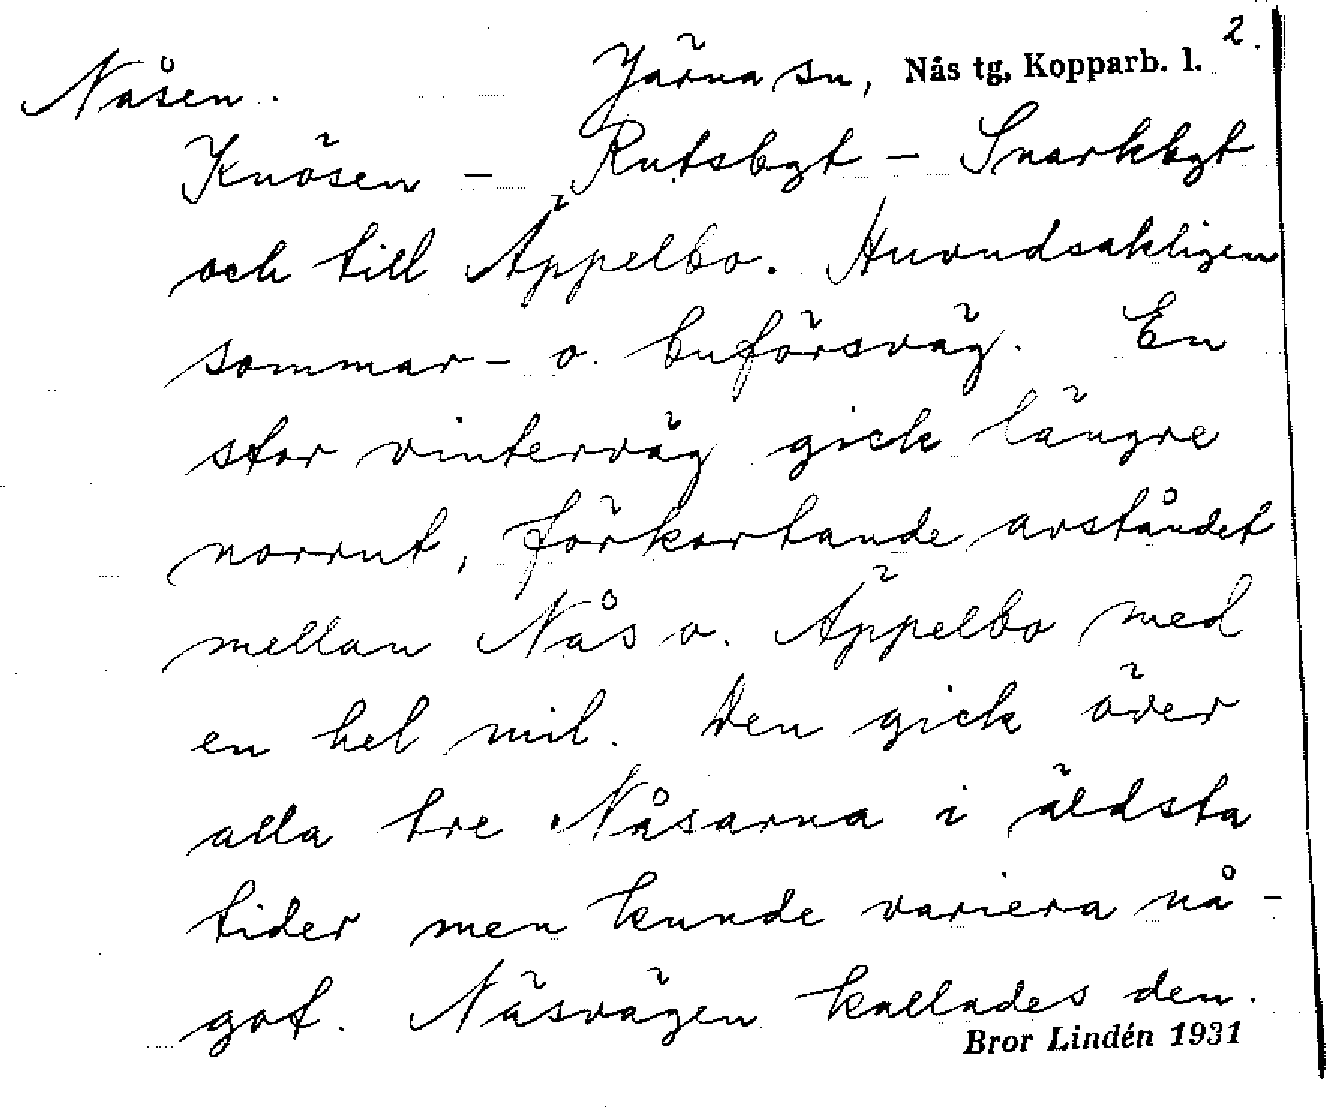 2.
Nåsen. Järna sn, Nås tg, Kopparb. l.
Knösen - Rutsbgt - Snarkbgt
och till Äppelbo. Huvudsakligen
sommar- o. buförsväg. En
stor vinterväg gick längre
norrut, förkortande avståndet
mellan Nås o. Äppelbo med
en hel mil. Den gick över
alla tre Nåsarna i äldsta
tider men kunde variera nå-
got. Näsvägen kallades den.
Bror Lindén 1931